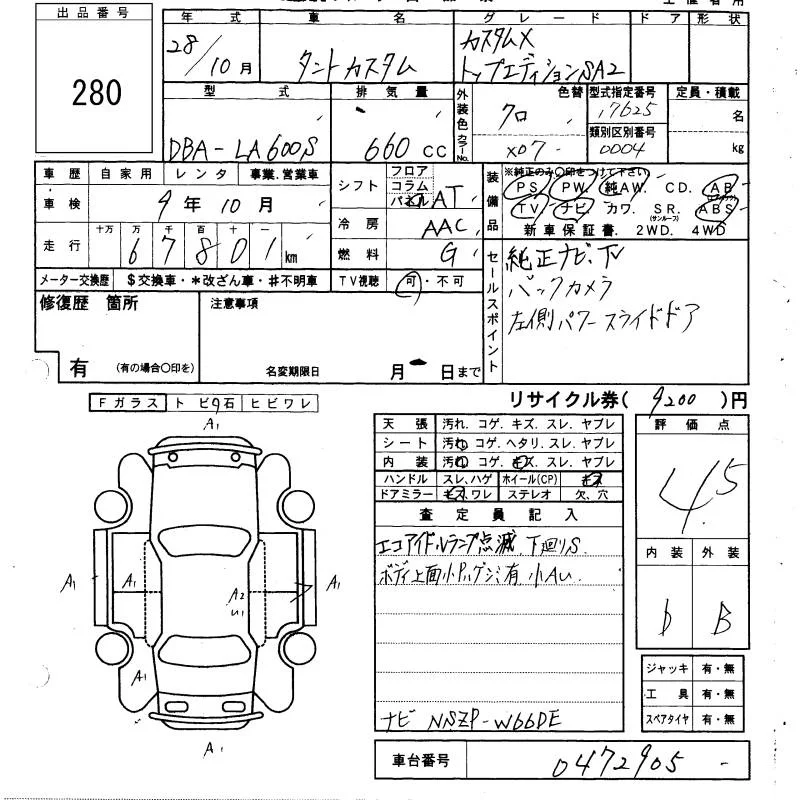 出品番号
280
年式 車名 グレード ドア 形状
28/10月 タントカスタム カスタムX トップエディションSA2
型式 排気量 外装色 色替 型式指定番号 定員・積載
DBA-LA600S 660cc クロ 17625 名
カラーNo. X07 類別区別番号 0004 kg
車歴 自家用 レンタ 事業.営業車
車検 9年10月
走行 十万 万 千 百 十 一
67801km
メーター交換歴 $交換車・*改ざん車・#不明車
シフト フロア コラム パネル AT
冷房 AAC
燃料 G
TV視聴 可・不可
装備品 ※純正のみ〇印をつけて下さい
PS. PW. 純AW. CD. AB
TV. ナビ. カワ. SR.(サンルーフ) ABS
新車保証書. 2WD. 4WD
セールスポイント
純正ナビ、TV
バックカメラ
左側パワースライドドア
修復歴 箇所 注意事項
有 (有の場合〇印を) 名変期限日 月 日まで
リサイクル券( 9200 )円
Fガラス トビ石 ヒビワレ
A1
A1 A1 A2 A1
U1
A1
A1
天張 汚れ. コゲ. キズ. スレ. ヤブレ
シート 汚れ. コゲ. ヘタリ. スレ. ヤブレ
内装 汚れ. コゲ. キズ. スレ. ヤブレ
ハンドル スレ, ハゲ ホイール(CP) キズ
ドアミラー キズ, ワレ ステレオ 欠、穴
査定員記入
エコアイドルランプ点滅 下廻りS
ボディ上面小P,ハゲシミ有 小AU
ナビ NSZP-W66DE
評価点
4.5
内装 外装
b B
ジャッキ 有・無
工具 有・無
スペアタイヤ 有・無
車台番号 0472905